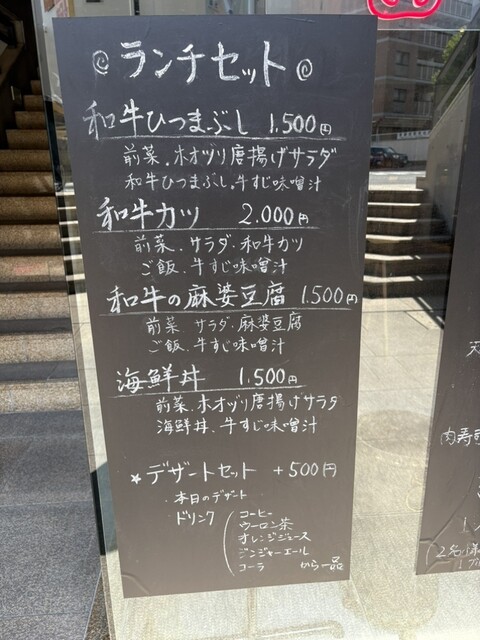 ランチセット
和牛ひつまぶし 1,500円
前菜.ホオヅリ唐揚げサラダ
和牛ひつまぶし.牛すじ味噌汁
和牛カツ 2.000円
前菜.サラダ.和牛カツ
ご飯.牛すじ味噌汁
和牛の麻婆豆腐 1.500円
前菜 サラダ.麻婆豆腐
ご飯.牛すじ味噌汁
海鮮丼 1.500円
前菜.ホオヅリ唐揚げサラダ
海鮮丼.牛すじ味噌汁
★デザートセット +500円
・本日のデザート
ドリンク(コーヒー
ウーロン茶
オレンジジュース
ジンジャーエール
コーラ から一品
肉寿司